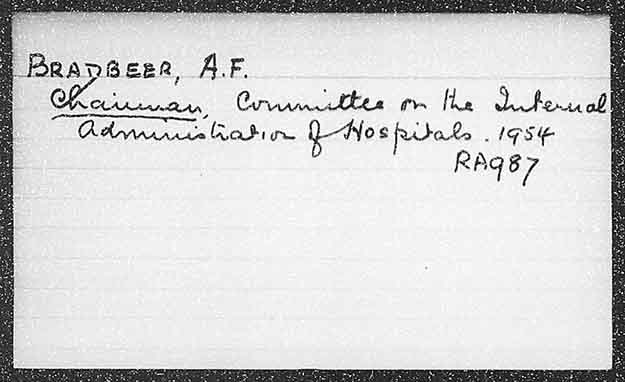 BRADBEER, A.F.
Chairman, Committee on the Internal
Administration of Hospitals. 1954
RA987